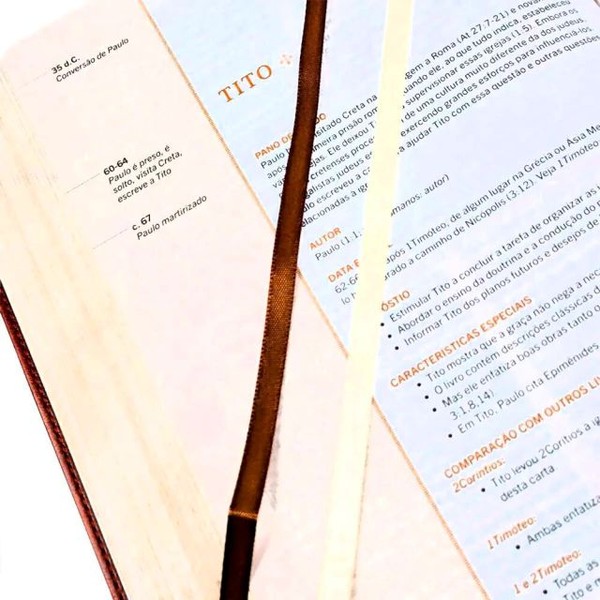 35 d.C.
Conversão de Paulo
60-64
Paulo é preso, é
solto, visita Creta,
escreve a Tito
c. 67
Paulo martirizado
TITO
gem a Roma (At 27.7-21) e novam
PANO DE
uando ele, ao que tudo indica, estabeleceu
Paulo sitado Creta na
supervisionar essas igrejas (1.5). Embora os
após primeira prisão rom
de uma cultura muito diferente da dos judeus,
jas. Ele deixou T
exercendo grandes esforços para influenciá-los
cretenses proce
ajudar Tito com essa questão e outras questões
alistas judeus es
lo escreveu a c
elacionadas à ig
AUTOR
Paulo (1.1; manos, autor)
DATA E
62-66 após 1Timóteo, de algum lugar na Grécia ou Ásia Me
rado a caminho de Nicópolis (3.12). Veja 1Timóteo
ÓSITO
• Estimular Tito a concluir a tarefa de organizar as
• Abordar o ensino da doutrina e a condução do
• Informar Tito dos planos futuros e desejos de
CARACTERÍSTICAS ESPECIAIS
• Tito mostra que a graça não nega a nec
• O livro contém descrições clássicas d
• Mas ele enfatiza boas obras tanto q
3.1,8,14)
• Em Tito, Paulo cita Epimênides
COMPARAÇÃO COM OUTROS LI
2Coríntios:
• Tito levou 2Coríntios a ig
desta carta
1Timóteo:
• Ambas enfatiz
1 e 2Timóteo:
• Todas as
• Tito e